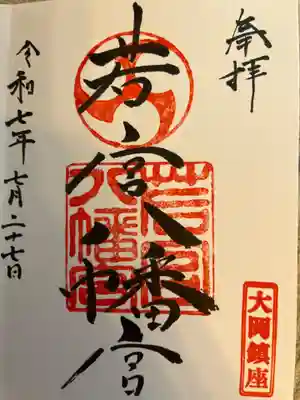 奉拝
若宮八幡宮
若宮
八幡宮
大岡鎮座
令和七年七月二十七日